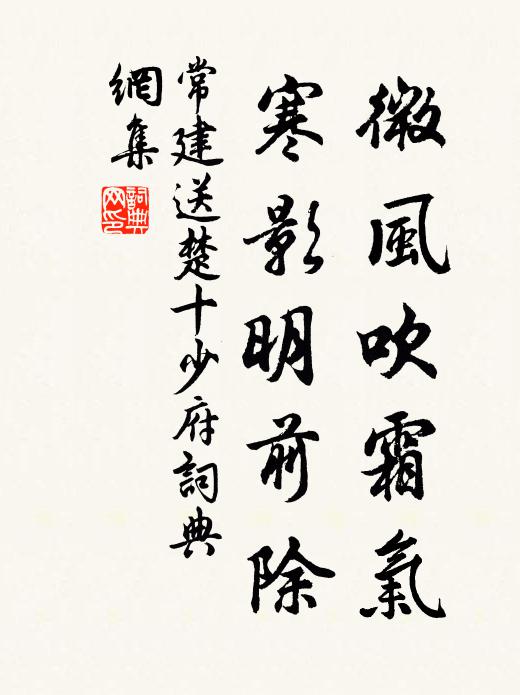 微風吹霜氣
寒影明前除
常建送楚十少府詞典
網集
詞典网印